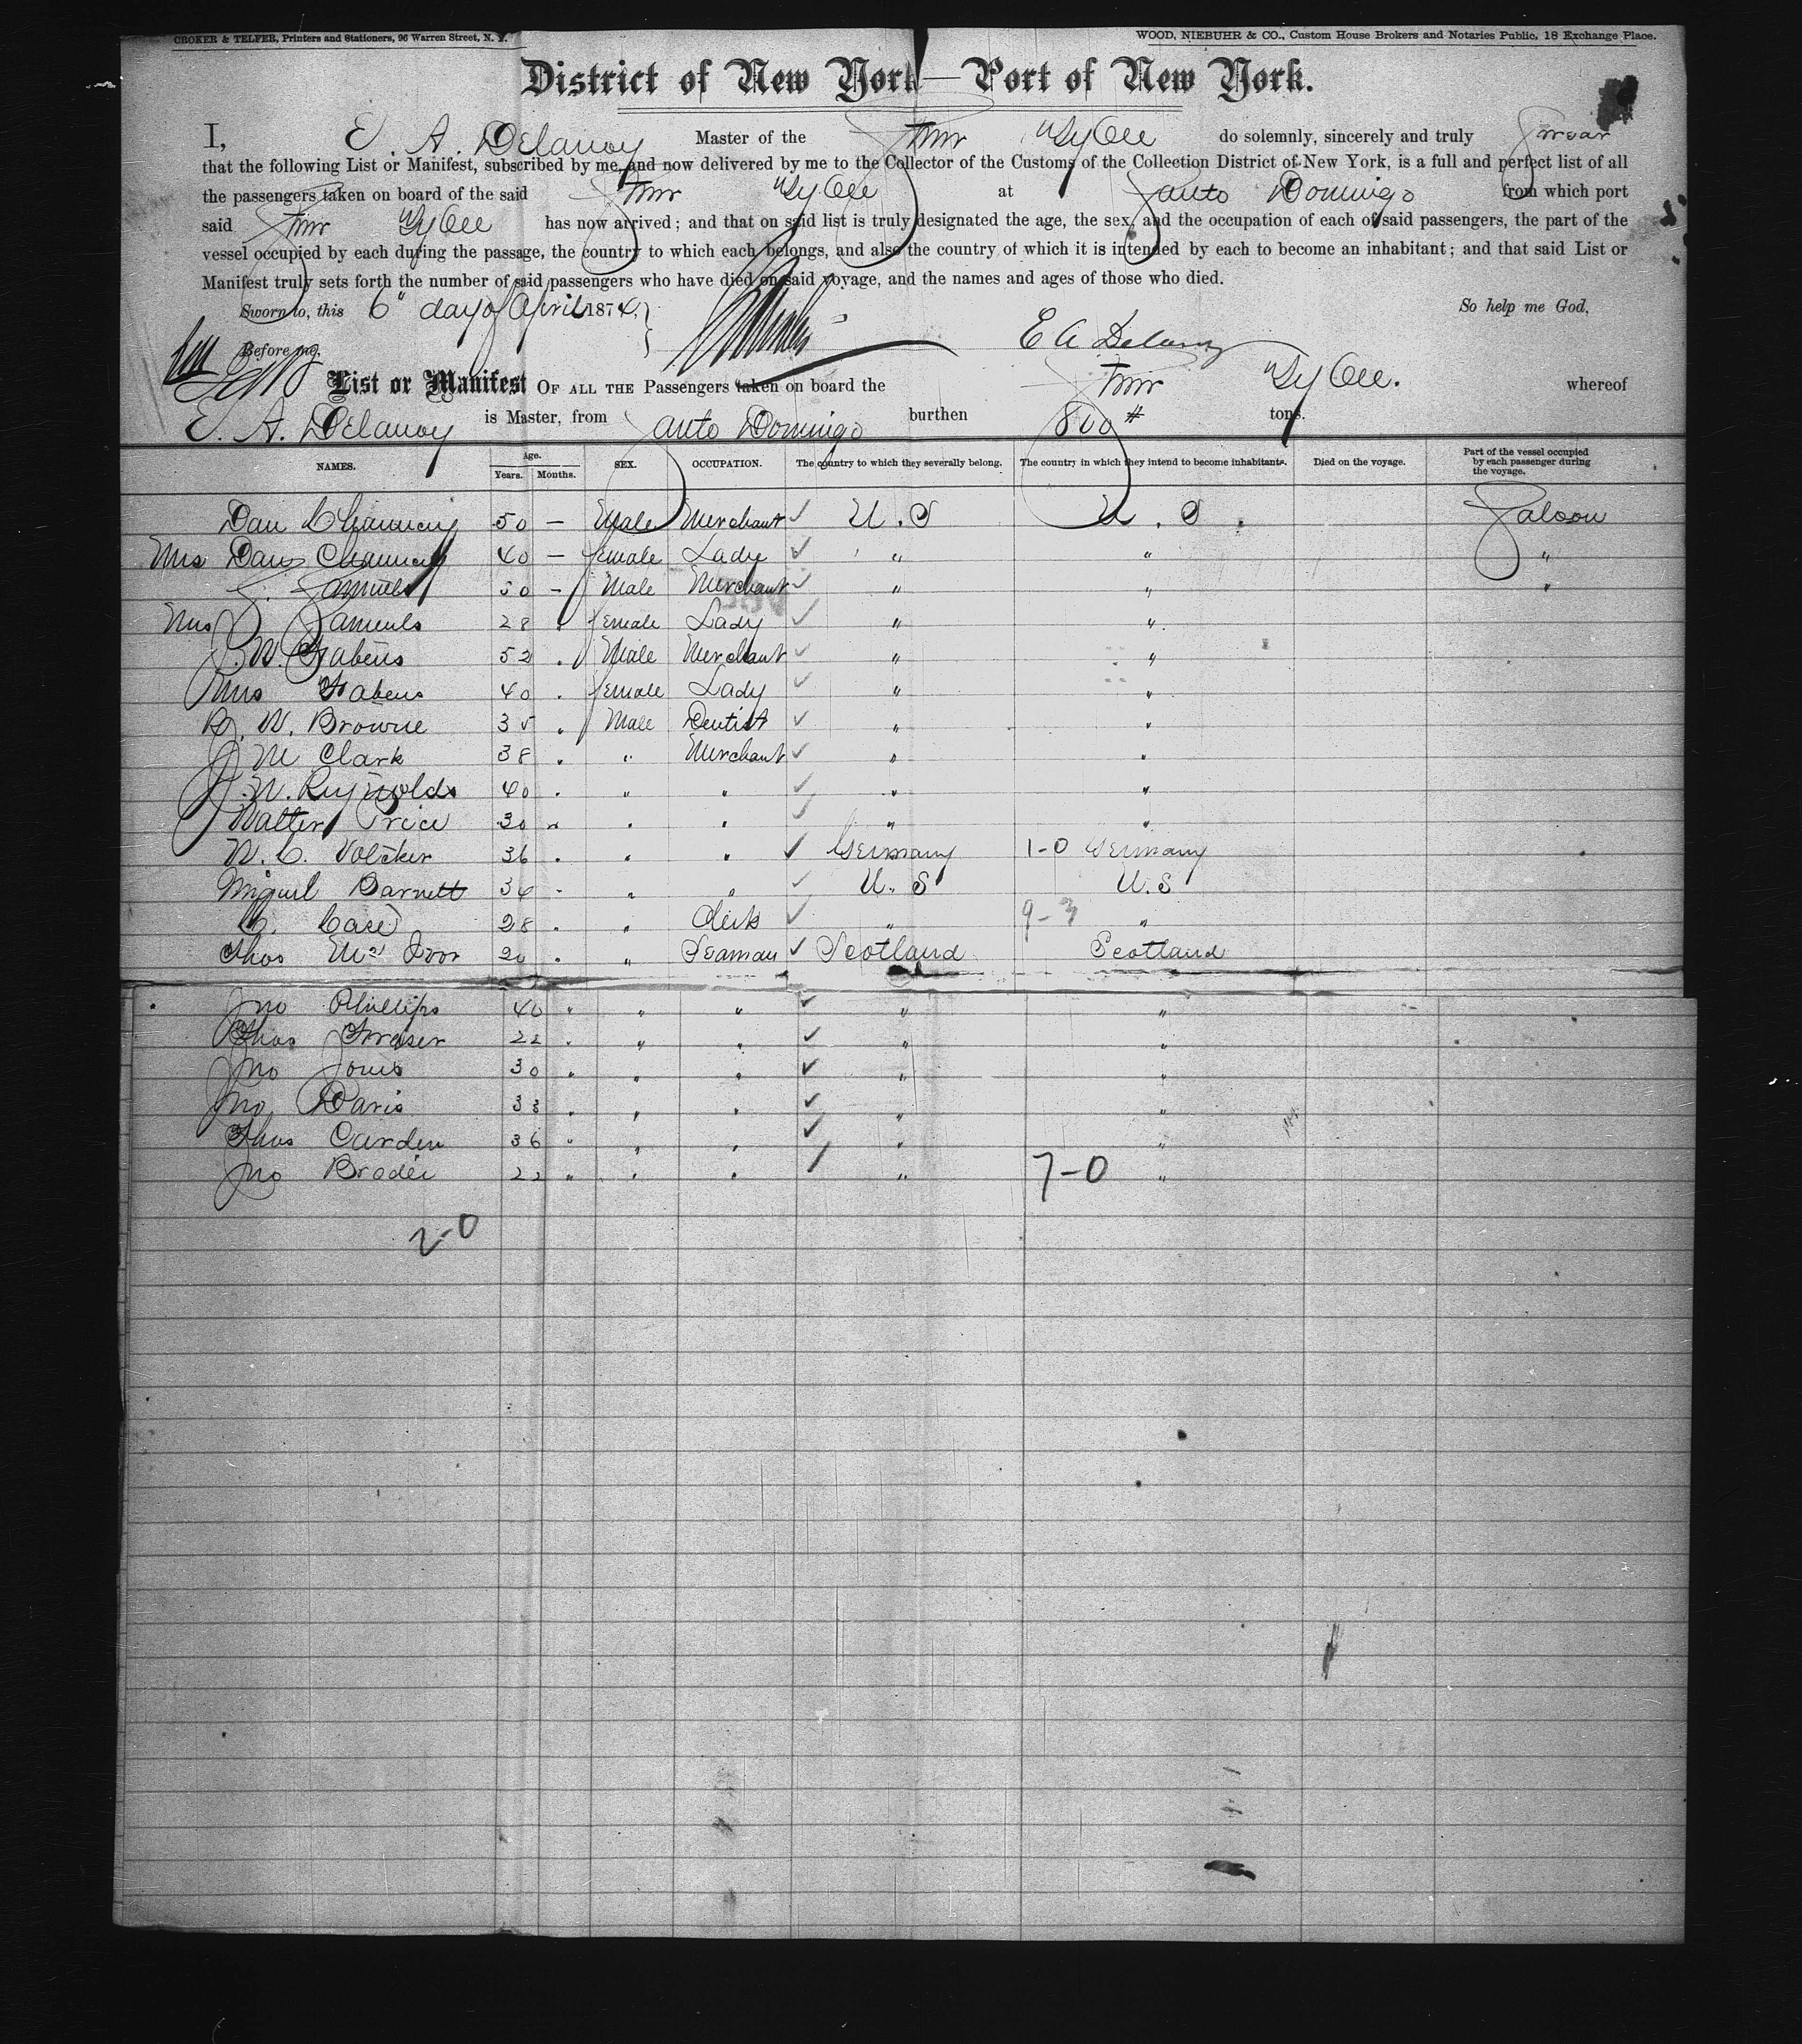 CROKER & TELFER, Printers and Stationers, 96 Warren Street, N. Y.
WOOD, NIEBUHR & CO., Custom House Brokers and Notaries Public, 18 Exchange Place.
District of New York—Port of New York.
I, E. A. Delanoy Master of the Stmr "TyBee do solemnly, sincerely and truly Swear
that the following List or Manifest, subscribed by me, and now delivered by me to the Collector of the Customs of the Collection District of New York, is a full and perfect list of all
the passengers taken on board of the said Stmr "TyBee at Santo Domingo from which port
said Stmr "TyBee has now arrived; and that on said list is truly designated the age, the sex, and the occupation of each of said passengers, the part of the
vessel occupied by each during the passage, the country to which each belongs, and also the country of which it is intended by each to become an inhabitant; and that said List or
Manifest truly sets forth the number of said passengers who have died on said voyage, and the names and ages of those who died.
Sworn to, this 6" day of April 1874, So help me God,
Before me, E A Delanoy
List or Manifest OF ALL THE Passengers taken on board the Stmr "TyBee. whereof
E. A. Delanoy is Master, from Santo Domingo burthen 800 # tons.
NAMES. Age. Years. Months. SEX. OCCUPATION. The country to which they severally belong. The country in which they intend to become inhabitants. Died on the voyage. Part of the vessel occupied by each passenger during the voyage.
Dan Chauncey 50 — Male Merchant ✓ U.S U.S. Saloon
Mrs Dan Chauncey 40 — female Lady ✓ " " "
S. Samuels 50 - Male Merchant ✓ " " "
Mrs S. Samuels 28 . female Lady ✓ " "
J. W. Fabens 52 . Male Merchant ✓ " "
Mrs Fabens 40 . female Lady ✓ " "
R. W. Browne 35 . Male Dentist ✓ " "
J M Clark 38 . " Merchant ✓ " "
J. W. Reynolds 40 . " " ✓ " "
Walter Price 30 " " " ✓ " "
W. C. Volcker 36 . " " ✓ Germany 1-0 Germany
Miguel Barnett 34 - " " ✓ U.S U.S
C. Case 28 . " Clerk ✓ " 9-3 "
Thos Mc Ivor 20 . " Seaman ✓ Scotland Scotland
Jno Phillips 40 " " " ✓ " "
Thos Fraser 22 . " " ✓ " "
Jno Jones 30 " " " ✓ " "
Jno Davis 33 " " " ✓ " "
Thos Carden 36 " " " ✓ " "
Jno Brodei 22 " " " / " 7-0 "
2-0